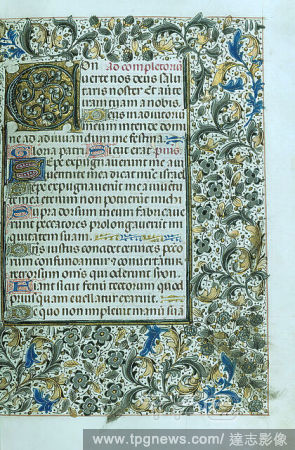 Ad completorium
Converte nos deus salu
taris noster Et averte
iram tuam a nobis
Deus in adiutorium
meum intende domi
ne ad adiuvandum me festina
Gloria patri Sicut erat
Sepe expugnaverunt me a iu
ventute mea dicat nunc israel
Sepe expugnaverunt me a iuventu
te mea etenim non potuerunt michi
Supra dorsum meum fabricave
runt peccatores prolongaverunt ini
quitatem suam
Dominus iustus concidet cervices pecca
confundantur et convertantur
retrorsum omnes qui oderunt syon
Fiant sicut fenum tectorum quod
priusquam evellatur exaruit
De quo non implevit manum suam
www.tpgnews.com / 達志影像